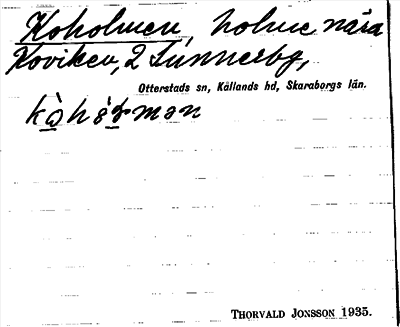 Koholmen, holme nära
Koviken, 2 Sunnerby,
Otterstads sn, Kållands hd, Skaraborgs län.
THORVALD JONSSON 1935.